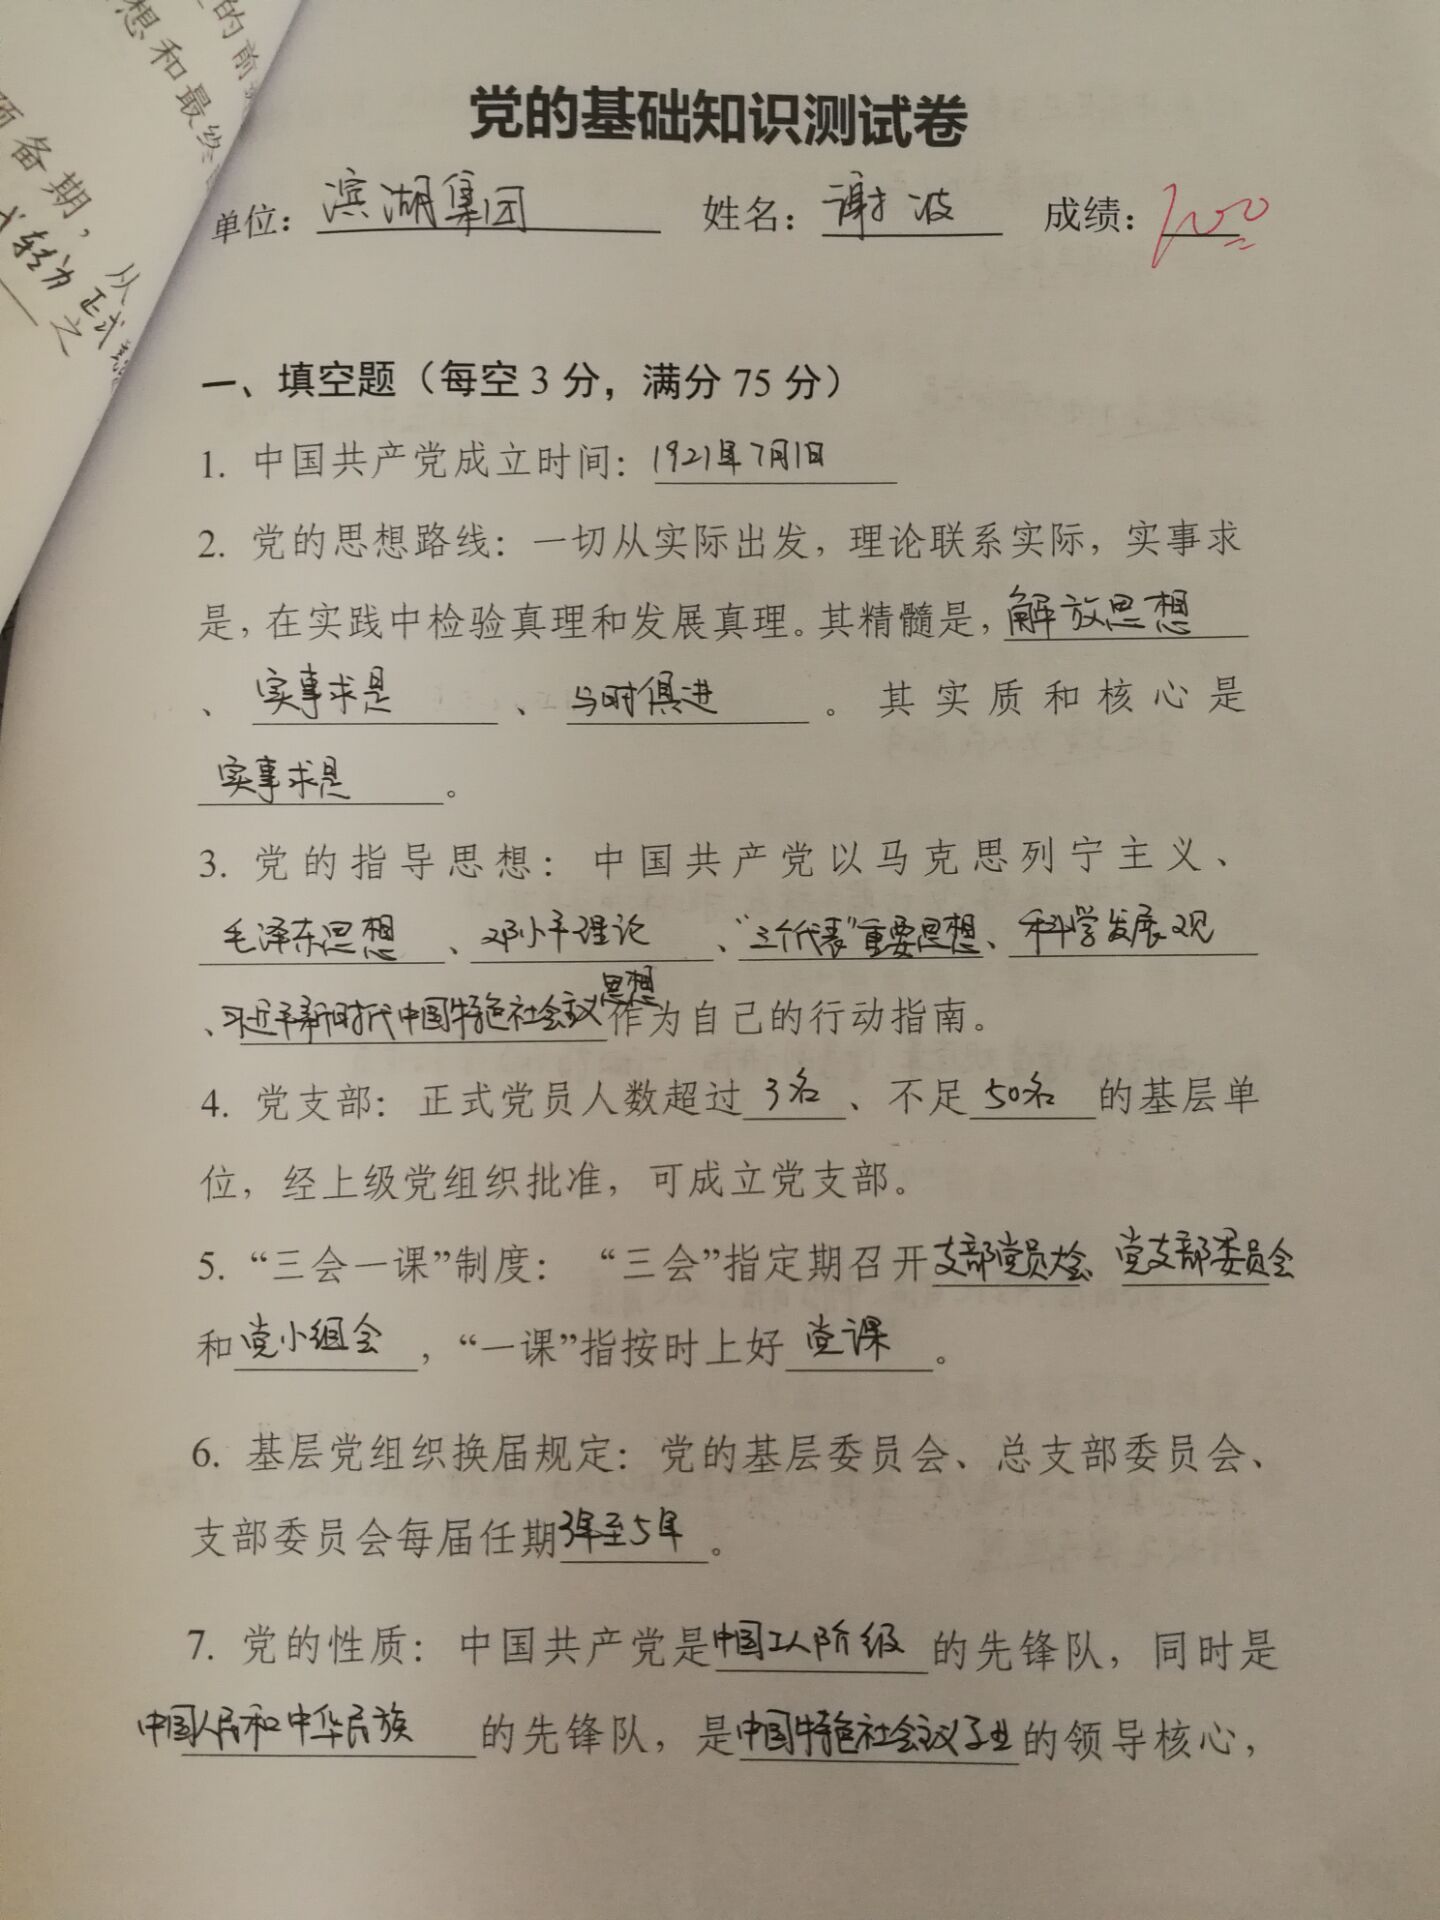 的前
想和最终
预备期，
从
转为正式
之
党的基础知识测试卷
单位：滨湖集团 姓名：谢波 成绩：100
一、填空题（每空3分，满分75分）
1. 中国共产党成立时间：1921年7月1日
2. 党的思想路线：一切从实际出发，理论联系实际，实事求
是，在实践中检验真理和发展真理。其精髓是，解放思想
、实事求是、与时俱进。其实质和核心是
实事求是。
3. 党的指导思想：中国共产党以马克思列宁主义、
毛泽东思想、邓小平理论、“三个代表”重要思想、科学发展观
、习近平新时代中国特色社会主义思想作为自己的行动指南。
4. 党支部：正式党员人数超过3名、不足50名的基层单
位，经上级党组织批准，可成立党支部。
5. “三会一课”制度：“三会”指定期召开支部党员大会、党支部委员会
和党小组会，“一课”指按时上好党课。
6. 基层党组织换届规定：党的基层委员会、总支部委员会、
支部委员会每届任期3年至5年。
7. 党的性质：中国共产党是中国工人阶级的先锋队，同时是
中国人民和中华民族的先锋队，是中国特色社会主义事业的领导核心，